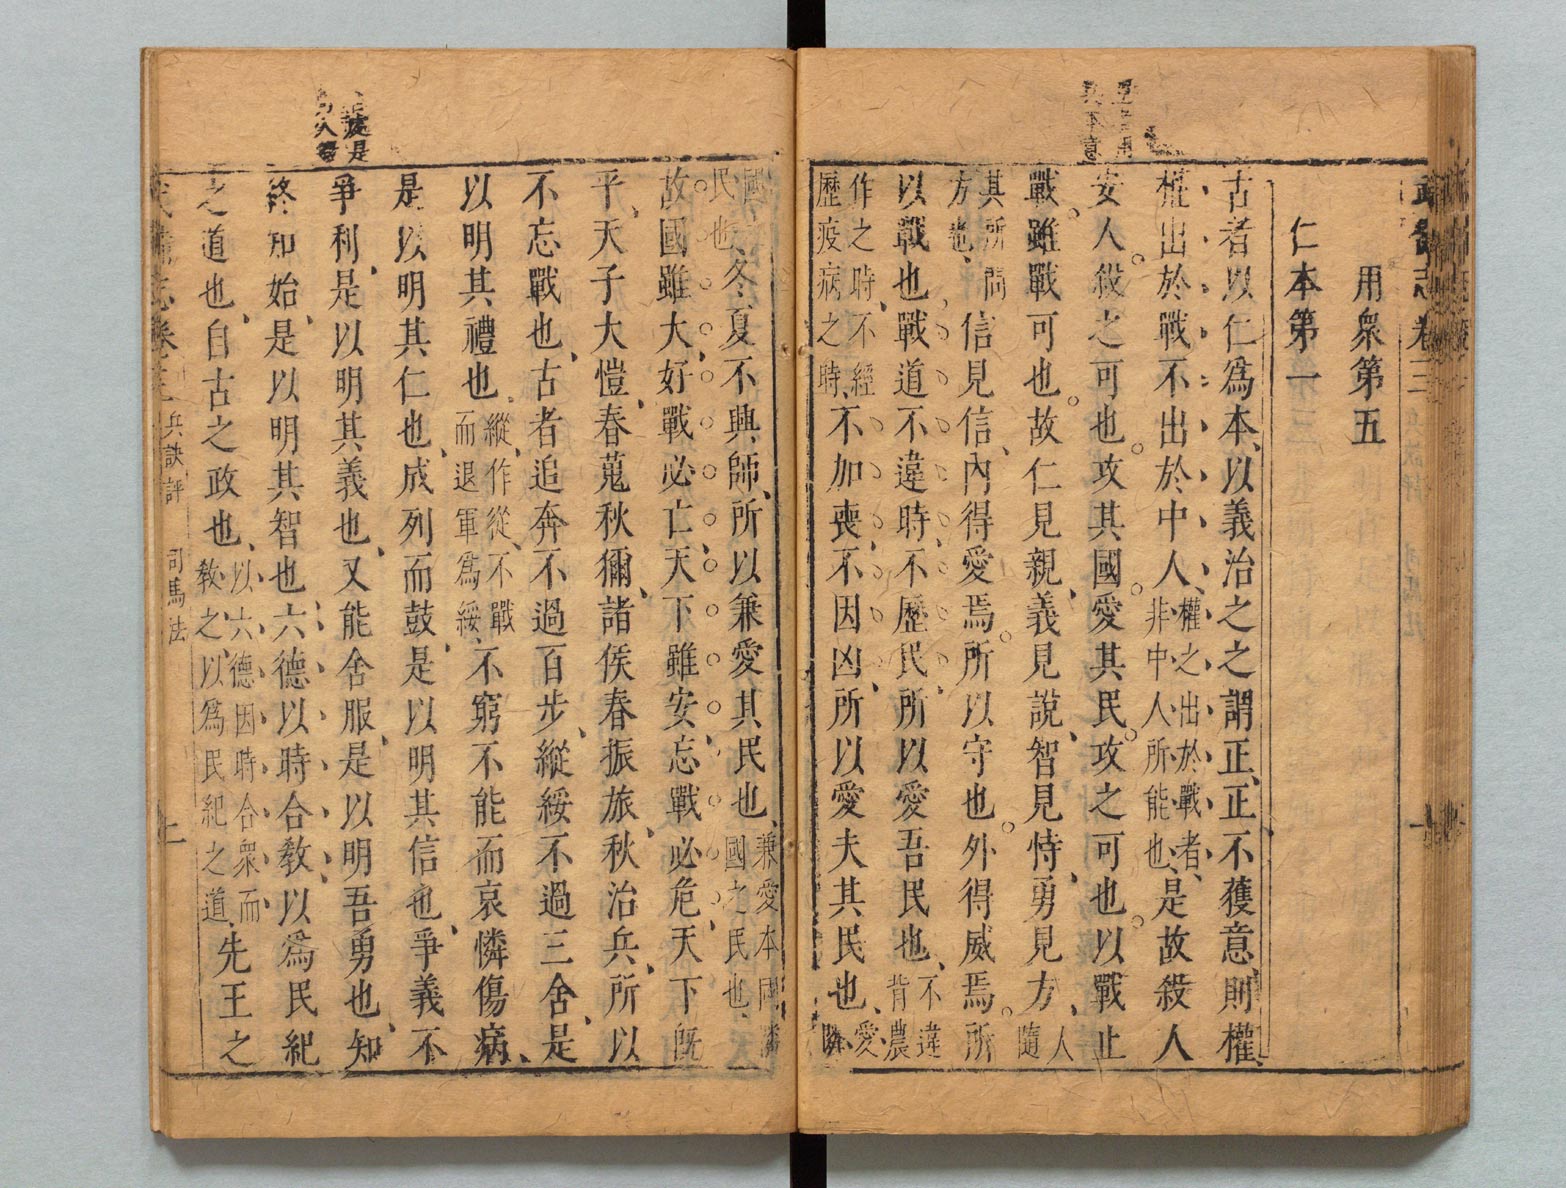 武備志卷三
用衆第五
仁本第一
古者以仁爲本、以義治之之謂正、正不獲意則權、
權出於戰不出於中人、權之出於戰者、非中人所能也、是故殺人
安人。殺之可也。攻其國。愛其民。攻之可也。以戰止
戰。雖戰可也。故仁見親、義見說、智見恃、勇見方、人隨
其所問方也、信見信、內得愛焉。所以守也。外得威焉。所
以戰也。戰道不違時、不歷民、所以愛吾民也、不違背農
作之時、不經歷疫病之時、不加喪、不因凶、所以愛夫其民也、愛隣
國民也、冬夏不興師、所以兼愛其民也、兼愛本國隣國之民也、
故國雖大、好戰必亡、天下雖安、忘戰必危、天下旣
平、天子大愷、春蒐秋獮、諸侯春振旅、秋治兵、所以
不忘戰也、古者追奔不過百步、縱綏不過三舍、是
以明其禮也、縱、作從、不戰而退軍爲綏、不窮不能而哀憐傷病、
是以明其仁也、成列而鼓、是以明其信也、爭義不
爭利、是以明其義也、又能舍服、是以明吾勇也、知
終知始、是以明其智也、六德以時合敎、以爲民紀
之道也、自古之政也、以六德因時合衆而敎之、以爲民紀之道、先王之
武備志卷三 兵訣評 司馬法 二